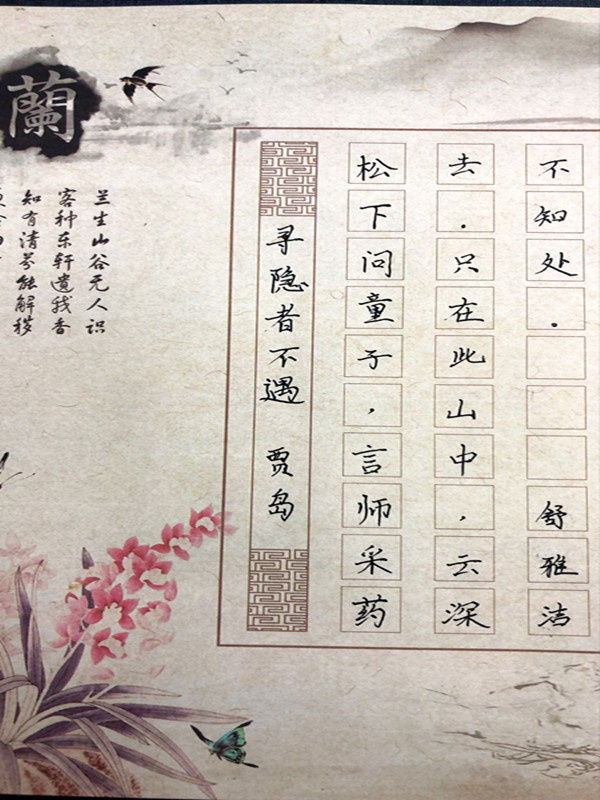 蘭
兰生山谷无人识
客种东轩遗我香
知有清芬能解秽
寻隐者不遇 贾岛
松下问童子，言师采药
去.只在此山中，云深
不知处. 舒雅洁